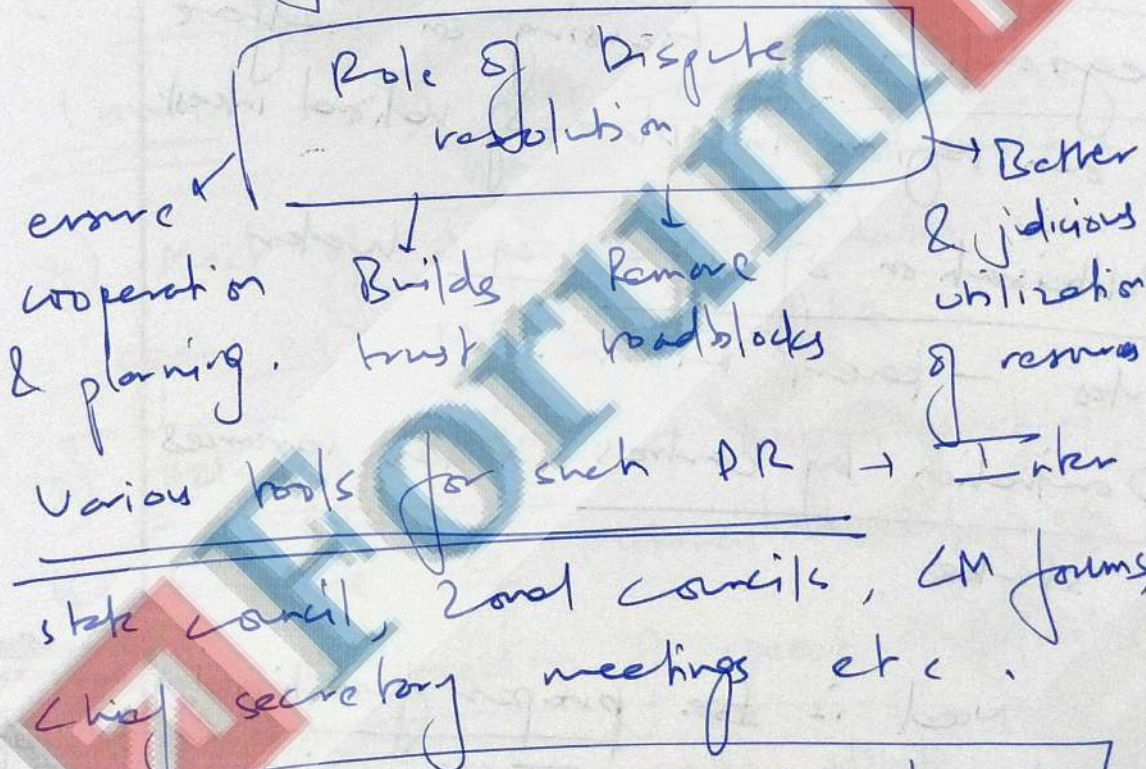 Role of Dispute
resolution
ensure
cooperation
& planning.
Builds
trust
Remove
roadblocks
→ Better
& judicious
utilization
of resources
Various tools for such DR → Inter
state council, Zonal councils, CM forums,
Chief secretary meetings etc.
Forum